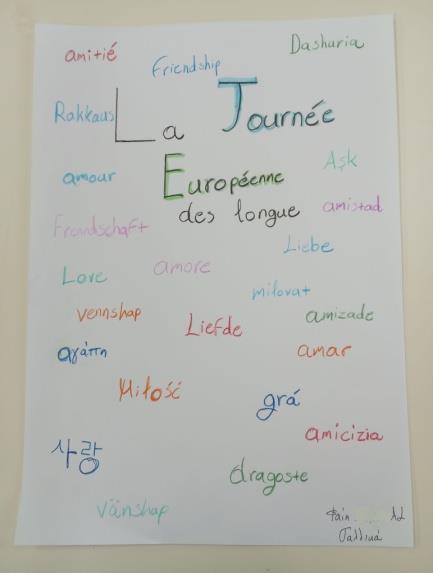 amitié
Friendship
Dashuria
Rakkaus
La Journée
Européenne
des longue
Aşk
amour
amistad
Freundschaft
Liebe
amore
Love
milovat
vennshap
Liefde
amizade
αγάπη
amar
Miłość
grá
amicizia
사랑
dragoste
vänshap